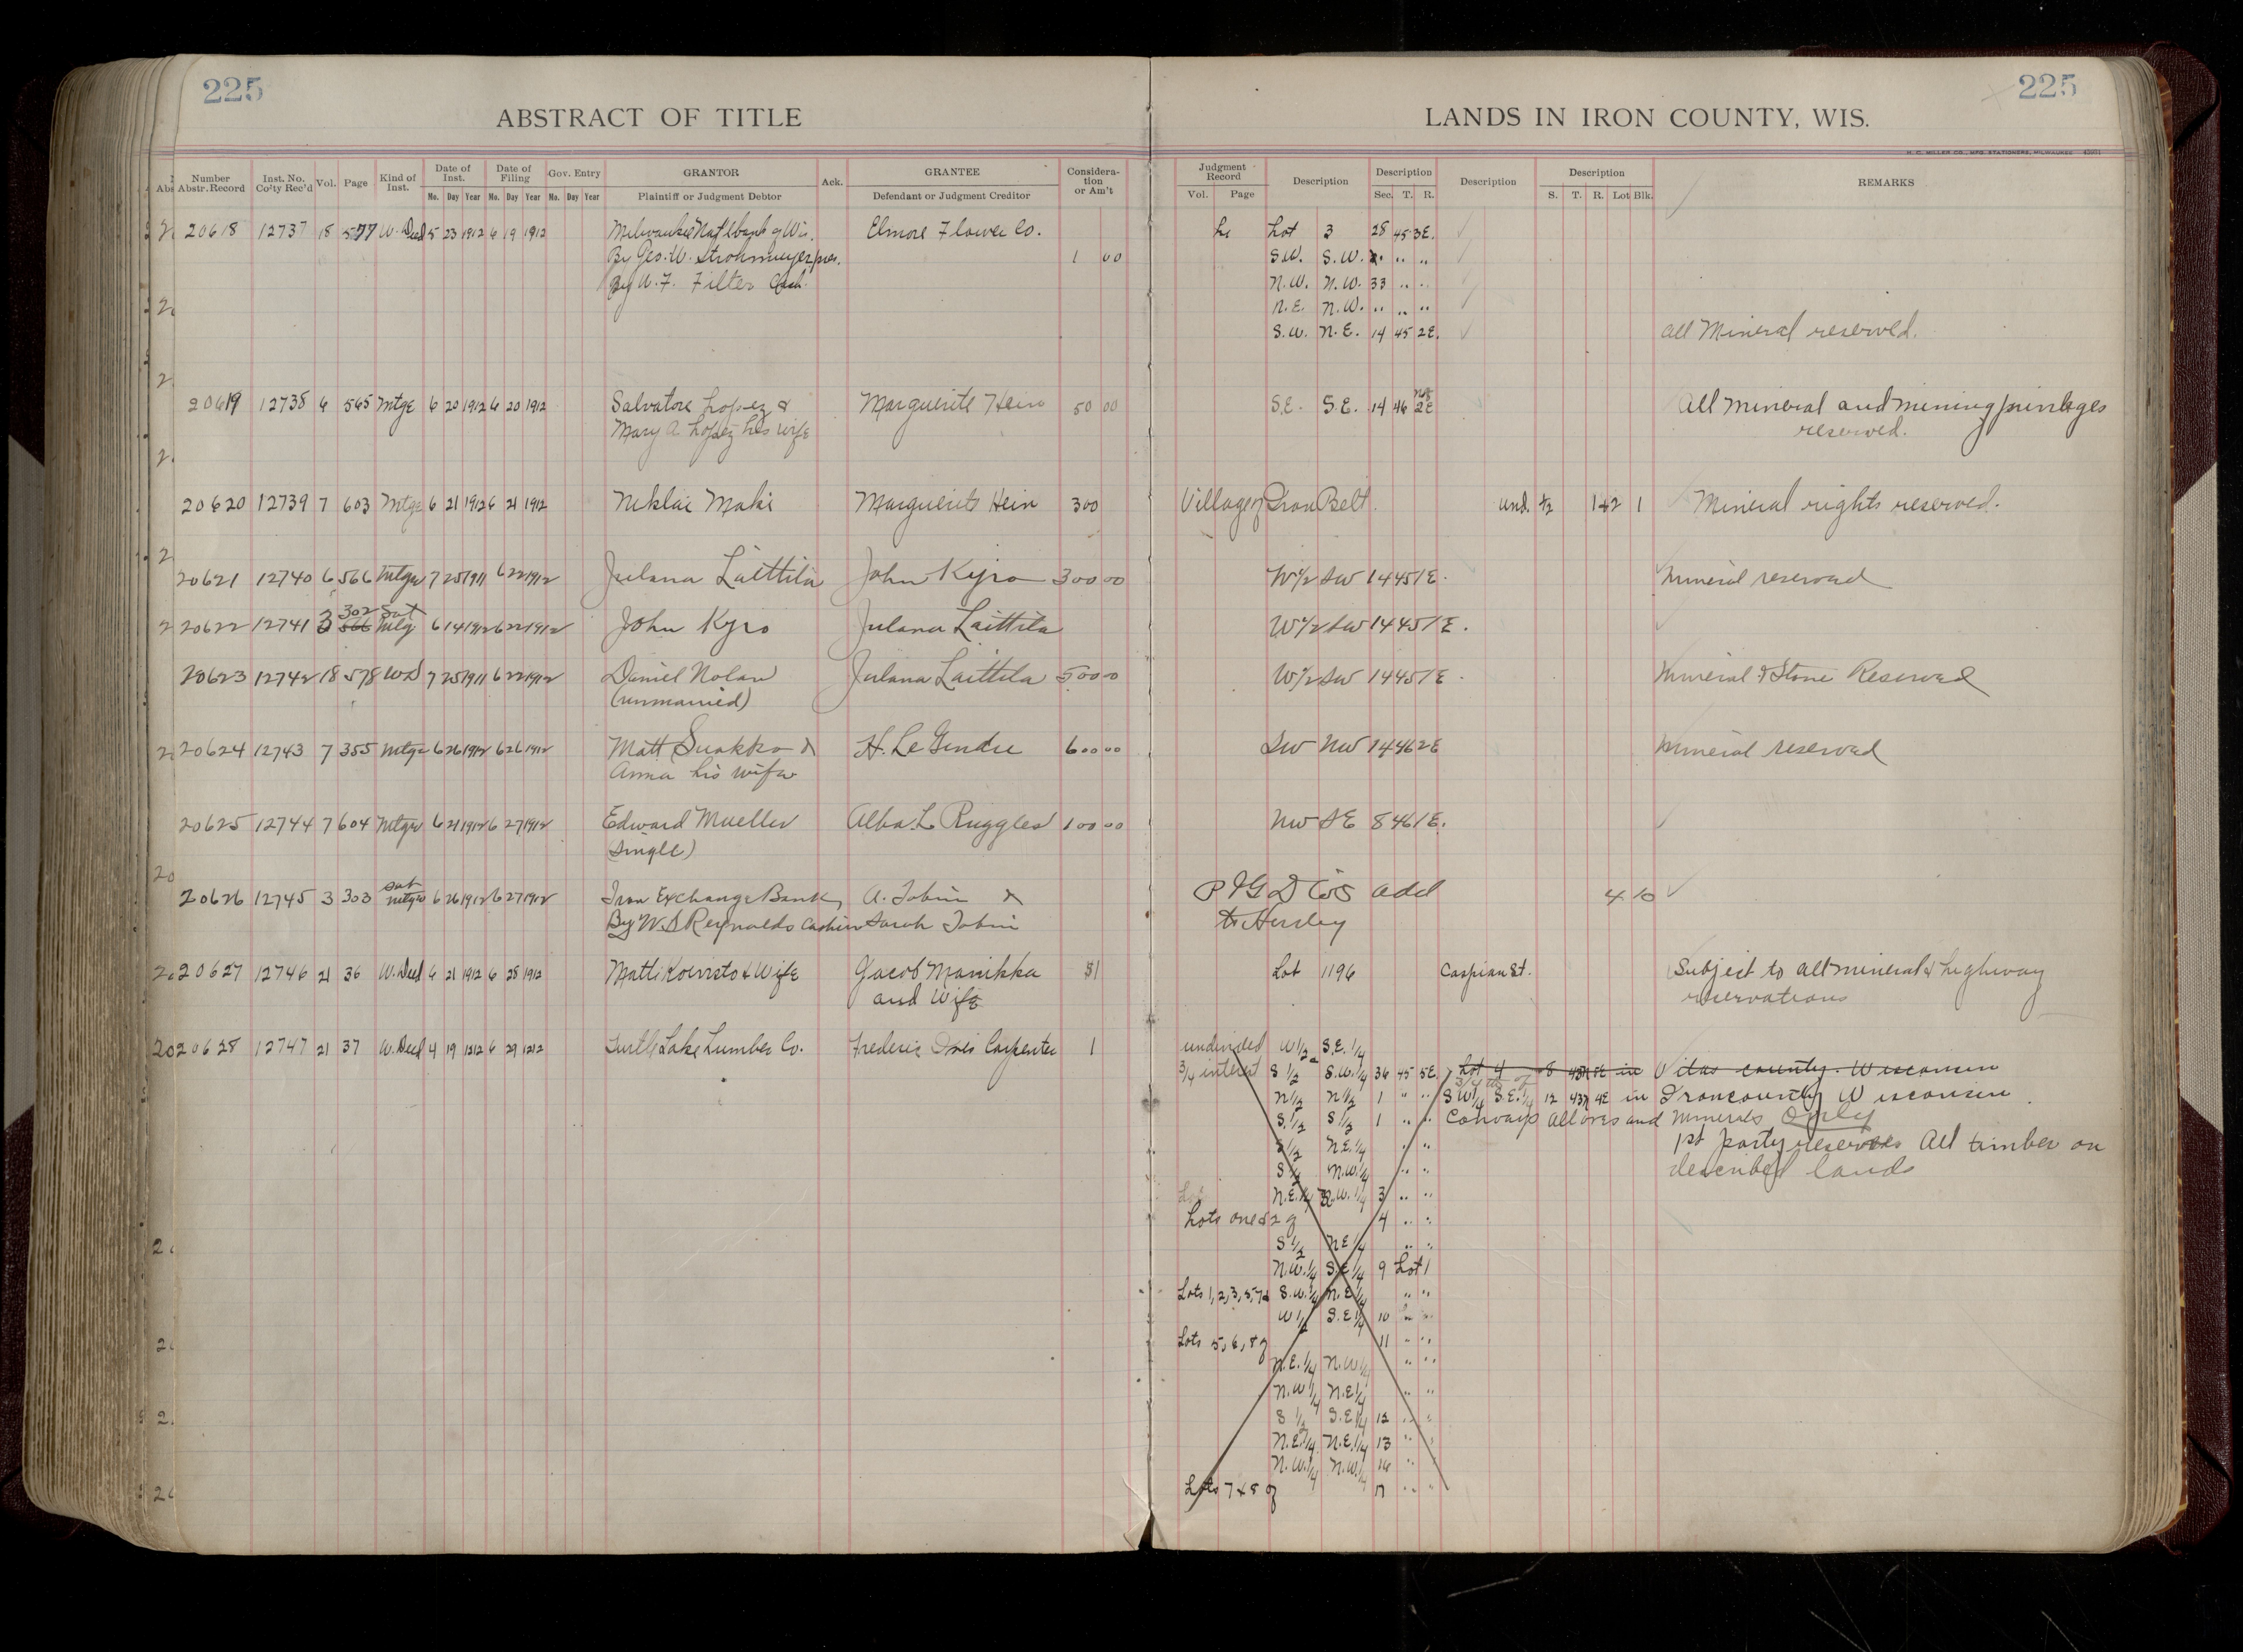 225
225
ABSTRACT OF TITLE
LANDS IN IRON COUNTY, WIS.
H. C. MILLER CO., MFG. STATIONERS, MILWAUKEE
Number Abstr. Record Inst. No. Co'ty Rec'd Vol. Page Kind of Inst. Date of Inst. Date of Filing Gov. Entry GRANTOR Ack. GRANTEE Consideration or Am't Judgment Record Description Description Description Description REMARKS
No. Day Year No. Day Year No. Day Year Plaintiff or Judgment Debtor Defendant or Judgment Creditor Vol. Page Sec. T. R. S. T. R. Lot Blk.
20618 12737 18 577 W. Deed 5 23 1912 6 19 1912 Milwaukee Natl bank of Wis. Elmore Flower Co. Lot 3 28 45 3E.
By Geo. W. Strohmeyer pres. 1 00 S.W. S.W. " " "
By W. F. Filter Cash. N.W. N.W. 33 " "
N.E. N.W. " " "
S.W. N.E. 14 45 2E. All Mineral reserved.
20619 12738 6 565 Mtge 6 20 1912 6 20 1912 Salvatore Lopez & Marguerite Hein 50 00 S.E. S.E. 14 46 2E All mineral and mining privileges
Mary A Lopez his wife reserved.
20620 12739 7 603 Mtge 6 21 1912 6 21 1912 Niklai Maki Marguerite Hein 300 Village of Iron Belt. und. 1/2 1+2 1 Mineral rights reserved.
20621 12740 6 566 Mtge 7 25 1911 6 22 1912 Julana Laittila John Kyro 300 00 W½ SW 14 45 1E. Mineral reserved
302 Sat
20622 12741 3 566 Mtg 6 14 1912 6 22 1912 John Kyro Julana Laittila W½ SW 14 45 1E.
20623 12742 18 578 WD 7 25 1911 6 22 1912 Daniel Nolan Julana Laittila 500 00 W½ SW 14 45 1E. Mineral & Stone Reserved
(unmarried)
20624 12743 7 355 Mtge 6 26 1912 6 26 1912 Matt Suokko & H. Le Gendre 600 00 SW NW 14 46 2E Mineral reserved
Anna his wife
20625 12744 7 604 Mtge 6 21 1912 6 27 1912 Edward Mueller Alba L Ruggles 100 00 NW SE 8 46 1E.
(single)
Sat
20626 12745 3 303 mtge 6 26 1912 6 27 1912 Iron Exchange Bank, A. Tobin & add 4 10
By W. S Reynolds Cashier Sarah Tobin to Hurley
20627 12746 21 36 W. Deed 6 21 1912 6 28 1912 Matti Koivisto & Wife Jacob Manikka $1 Lot 1196 Caspian St. Subject to all mineral & highway
and Wife reservations
20628 12747 21 37 W. Deed 4 19 1212 6 29 1212 Turtle Lake Lumber Co. Frederic Ives Carpenter 1 undivided W 1/2 S.E. 1/4
3/4 interest S 1/2 S.W. 1/4 36 45 5E. Lot 4 8 43N 5E in Vilas county. Wisconsin
3/4 th of
N 1/2 N 1/2 1 " " SW 1/4 S.E. 1/4 12 43N 4E in Iron county Wisconsin.
S. 1/2 S 1/2 1 " " Conveys all ores and Minerals Only
S 1/2 N.E. 1/4 " " 1st party reserves All timber on
S 1/2 N.W. 1/4 " " described lands
N.E. 1/4 N.W. 1/4 3 " "
Lots one & 2 of 4 " "
S 1/2 NE 1/4 " "
N.W. 1/4 S.E. 1/4 9 Lot 1
Lots 1, 2, 3, 5, 7 & S.W. 1/4 N.E. 1/4 " "
W 1/2 S.E. 1/4 10 " "
Lots 5, 6, 8 of 11 " "
N.E. 1/4 N.W. 1/4 " "
N.W 1/4 N.E 1/4 " "
S 1/2 S.E 1/4 12 " "
N.E. 1/4 N.E. 1/4 13 " "
N.W. 1/4 N.W. 1/4 16 "
Lots 7 & 8 of 17 " "